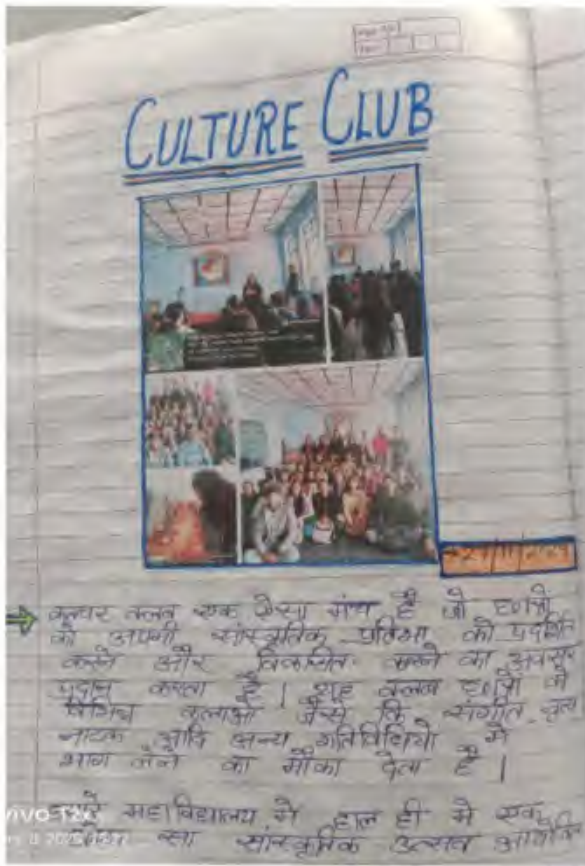 CULTURE CLUB
27/11/2024
कल्चर क्लब एक ऐसा मंच है जो छात्रों
को अपनी सांस्कृतिक प्रतिभा को प्रदर्शित
करने और विकसित करने का अवसर
प्रदान करता है | यह क्लब छात्रों को
विभिन्न कलाओं जैसे कि संगीत, नृत्य
नाटक आदि अन्य गतिविधियो में
भाग लेने का मौका देता है |
हमारे महाविद्यालय मे हाल ही मे एक
सा सांस्कृतिक उत्सव आयोजित
vivo T2x